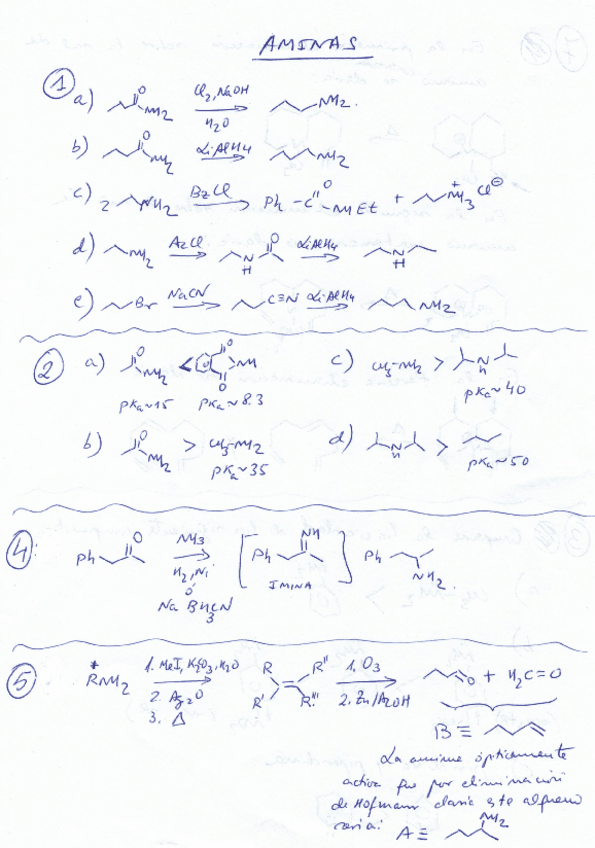 AMINAS
1
a) O NH2 Cl2, NaOH H2O NH2.
b) O NH2 LiAlH4 NH2
c) 2 NH2 BzCl Ph-C-NHEt O + NH3 + Cl⊖
d) NH2 AcCl N H O LiAlH4 N H
e) Br NaCN C≡N LiAlH4 NH2
2 a) O NH2 < O NH O
pKa~15 pKa~8.3
c) CH3-NH2 > N H
pKa~40
b) O NH2 > CH3-NH2
pKa~35
d) N H >
pKa~50
4: Ph O NH3 H2, Ni ó NaBH3CN [Ph NH IMINA] Ph NH2.
5 * RNH2 1. MeI, K2CO3, H2O 2. Ag2O 3. Δ R R' R'' R''' 1, O3 2. Zn/AcOH O + H2C=O
B ≡
La amina ópticamente
activa que por eliminación
de Hofmann daría este alqueno
sería:
A ≡ NH2